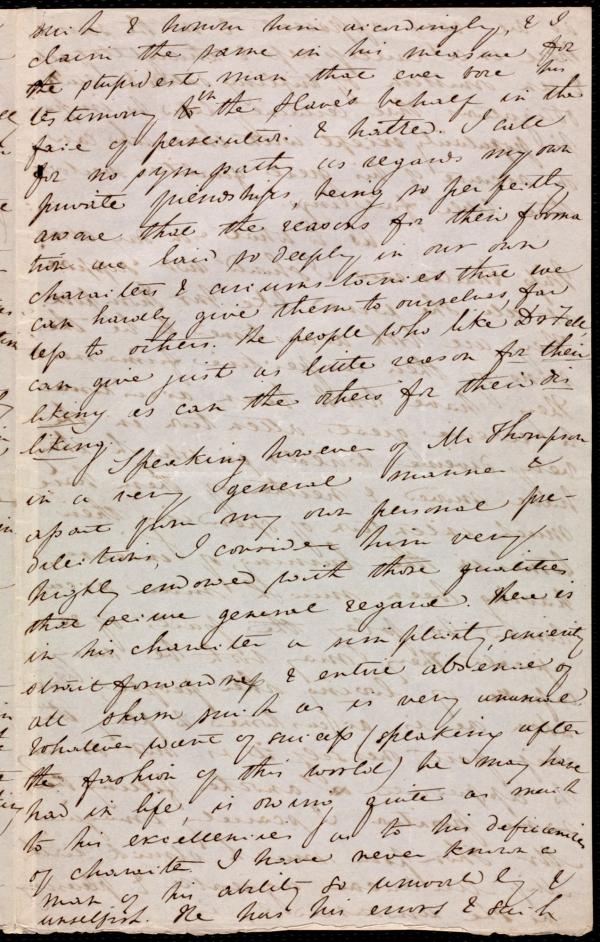 such & honour him accordingly, & I
claim the same in his measure for
the stupidest man that ever bore his
testimony in the slave's behalf in the
face of persecution & hatred. I call
for no sympathy as regards my own
private friendships, being so perfectly
aware that the reasons for their forma
tion are laid so deeply in our own
characters & circumstances that we
can hardly give them to ourselves, far
less to others. The people who like Dr Fell
can give just as little reason for their
liking as can the others for their dis
liking.
Speaking however of Mr Thompson
in a very general manner &
apart from my own personal pre-
dilections, I consider him very
highly endowed with those qualities
that secure general regard. There is
in his character a simplicity, sincerity
strait forwardness & entire absence of
all sham such as is very unusual
& whatever want of success (speaking after
the fashion of this world) he may have
had in life, is owing quite as much
to his excellencies as to his deficiencies
of character. I have never known a
man of his ability so unworldly &
unselfish. He has his errors & such